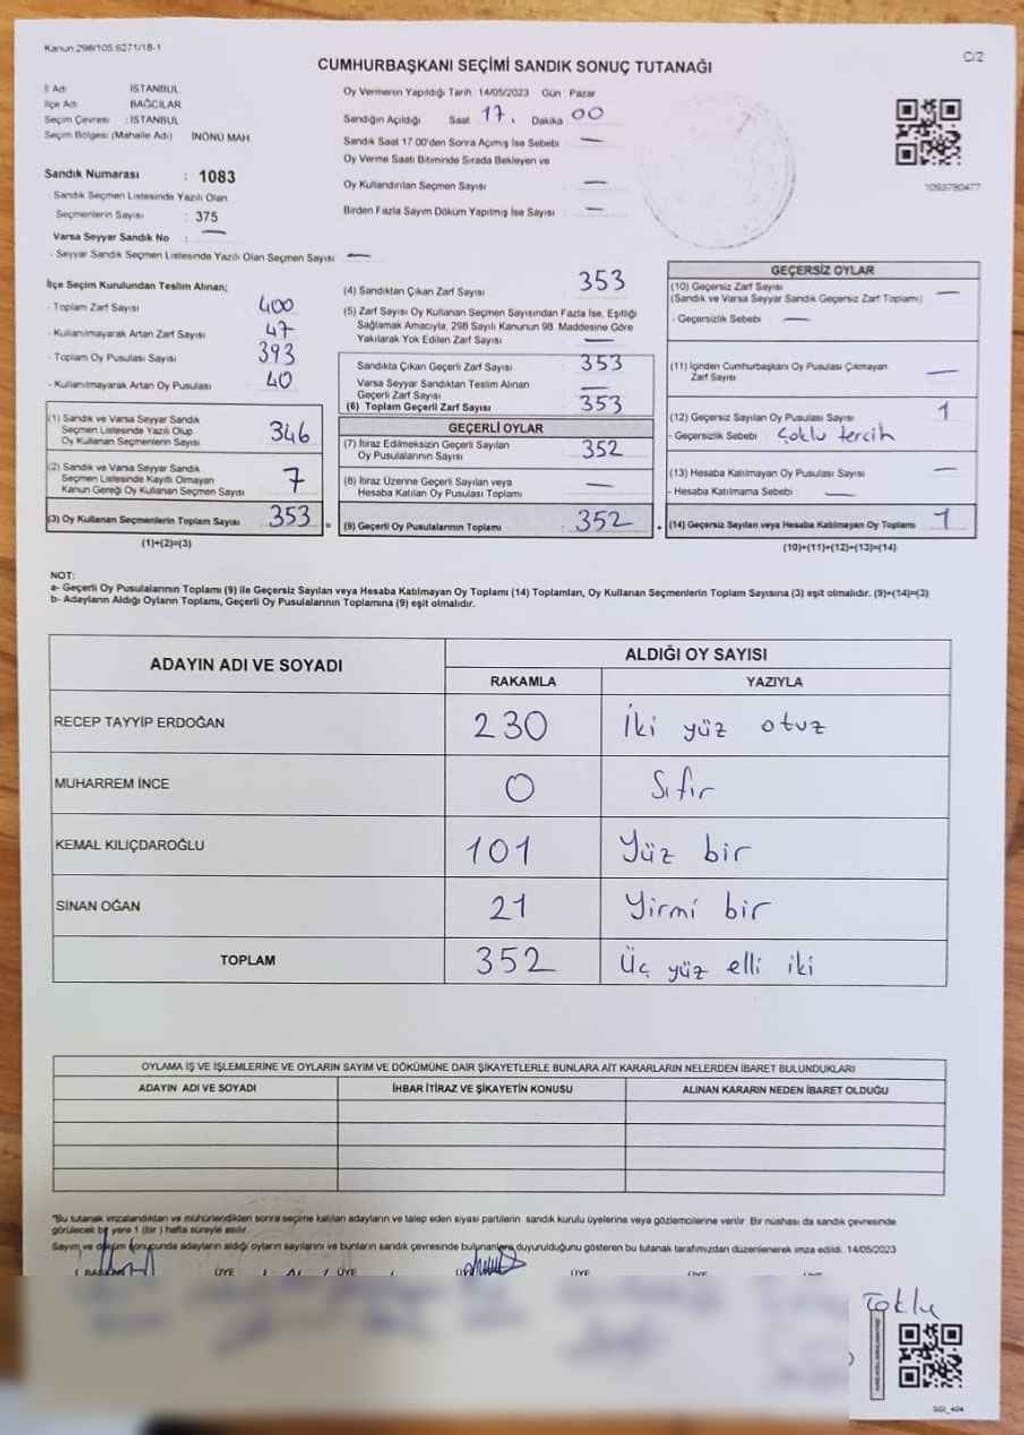 Kanun:298/105.6271/18-1
C/2
CUMHURBAŞKANI SEÇİMİ SANDIK SONUÇ TUTANAĞI
İl Adı : İSTANBUL
İlçe Adı : BAĞCILAR
Seçim Çevresi : İSTANBUL
Seçim Bölgesi (Mahalle Adı) İNÖNÜ MAH.
Sandık Numarası : 1083
- Sandık Seçmen Listesinde Yazılı Olan
Seçmenlerin Sayısı : 375
Varsa Seyyar Sandık No : —
- Seyyar Sandık Seçmen Listesinde Yazılı Olan Seçmen Sayısı —
Oy Vermenin Yapıldığı Tarih :14/05/2023 Gün : Pazar
Sandığın Açıldığı Saat 17. Dakika 00
Sandık Saat 17:00'den Sonra Açılmış İse Sebebi —
Oy Verme Saati Bitiminde Sırada Bekleyen ve
Oy Kullandırılan Seçmen Sayısı —
Birden Fazla Sayım Döküm Yapılmış İse Sayısı —
1093780477
İlçe Seçim Kurulundan Teslim Alınan;
- Toplam Zarf Sayısı 400
- Kullanılmayarak Artan Zarf Sayısı 47
- Toplam Oy Pusulası Sayısı 393
- Kullanılmayarak Artan Oy Pusulası 40
(1) Sandık ve Varsa Seyyar Sandık
Seçmen Listesinde Yazılı Olup
Oy Kullanan Seçmenlerin Sayısı 346
(2) Sandık ve Varsa Seyyar Sandık
Seçmen Listesinde Kayıtlı Olmayan
Kanun Gereği Oy Kullanan Seçmen Sayısı 7
(3) Oy Kullanan Seçmenlerin Toplam Sayısı 353
(1)+(2)=(3)
(4) Sandıktan Çıkan Zarf Sayısı 353
(5) Zarf Sayısı Oy Kullanan Seçmen Sayısından Fazla İse, Eşitliği
Sağlamak Amacıyla, 298 Sayılı Kanunun 98. Maddesine Göre
Yakılarak Yok Edilen Zarf Sayısı —
Sandıkta Çıkan Geçerli Zarf Sayısı 353
Varsa Seyyar Sandıktan Teslim Alınan
Geçerli Zarf Sayısı —
(6) Toplam Geçerli Zarf Sayısı 353
GEÇERLİ OYLAR
(7) İtiraz Edilmeksizin Geçerli Sayılan
Oy Pusulalarının Sayısı 352
(8) İtiraz Üzerine Geçerli Sayılan veya
Hesaba Katılan Oy Pusulası Toplamı —
(9) Geçerli Oy Pusulalarının Toplamı 352
GEÇERSİZ OYLAR
(10) Geçersiz Zarf Sayısı —
(Sandık ve Varsa Seyyar Sandık Geçersiz Zarf Toplamı)
- Geçersizlik Sebebi —
(11) İçinden Cumhurbaşkanı Oy Pusulası Çıkmayan
Zarf Sayısı —
(12) Geçersiz Sayılan Oy Pusulası Sayısı 1
- Geçersizlik Sebebi Çoklu tercih
(13) Hesaba Katılmayan Oy Pusulası Sayısı —
- Hesaba Katılmama Sebebi —
(14) Geçersiz Sayılan veya Hesaba Katılmayan Oy Toplamı 1
(10)+(11)+(12)+(13)=(14)
NOT:
a- Geçerli Oy Pusulalarının Toplamı (9) ile Geçersiz Sayılan veya Hesaba Katılmayan Oy Toplamı (14) Toplamları, Oy Kullanan Seçmenlerin Toplam Sayısına (3) eşit olmalıdır. (9)+(14)=(3)
b- Adayların Aldığı Oyların Toplamı, Geçerli Oy Pusulalarının Toplamına (9) eşit olmalıdır.
ADAYIN ADI VE SOYADI ALDIĞI OY SAYISI
RAKAMLA YAZIYLA
RECEP TAYYİP ERDOĞAN 230 İki yüz otuz
MUHARREM İNCE 0 Sıfır
KEMAL KILIÇDAROĞLU 101 Yüz bir
SİNAN OĞAN 21 Yirmi bir
TOPLAM 352 Üç yüz elli iki
OYLAMA İŞ VE İŞLEMLERİNE VE OYLARIN SAYIM VE DÖKÜMÜNE DAİR ŞİKAYETLERLE BUNLARA AİT KARARLARIN NELERDEN İBARET BULUNDUKLARI
ADAYIN ADI VE SOYADI İHBAR İTİRAZ VE ŞİKAYETİN KONUSU ALINAN KARARIN NEDEN İBARET OLDUĞU
"Bu tutanak imzalandıktan ve mühürlendikten sonra seçime katılan adayların ve talep eden siyasi partilerin sandık kurulu üyelerine veya gözlemcilerine verilir. Bir nüshası da sandık çevresinde
görülecek bir yere 1 (bir ) hafta süreyle asılır.
Sayım ve döküm sonucunda adayların aldığı oyların sayılarını ve bunların sandık çevresinde bulunanlara duyurulduğunu gösteren bu tutanak tarafımızdan düzenlenerek imza edildi. 14/05/2023
ÜYE ÜYE ÜYE ÜYE